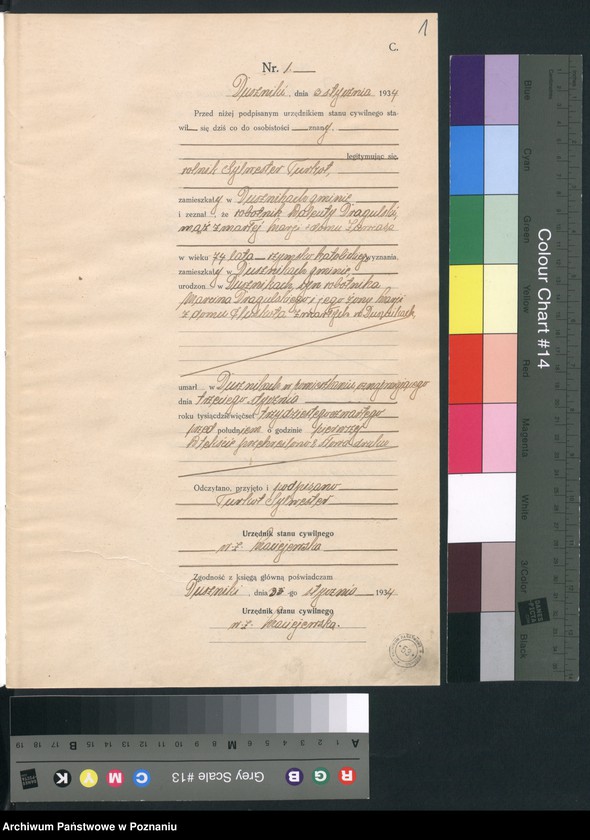 1
C.
Nr. 1.
Duszniki, dnia 3 stycznia 1934
Przed niżej podpisanym urzędnikiem stanu cywilnego sta-
wił się dziś co do osobistości znany,
legitymując się
rolnik Sylwester Turkot,
zamieszkały w Dusznikach gminie
i zeznał, że robotnik Walenty Dragulski,
mąż zmarłej Marji z domu
w wieku 74 lata rzymsko katolickiego wyznania,
zamieszkały w Dusznikach gminie,
urodzon. y w Dusznikach, syn robotnika
Marcina Dragulskiego i jego żony Marji
z domu zmarłych w Dusznikach,
umarł w Dusznikach w pomieszkaniu
dnia trzeciego stycznia
roku tysiącdziewięćset trzydziestegoczwartego
przed południem o godzinie pierwszej
Odczytano, przyjęto i podpisano
Turkot Sylwester
Urzędnik stanu cywilnego
w z. Maciejewska
Zgodność z księgą główną poświadczam
Duszniki, dnia -go stycznia 1934
Urzędnik stanu cywilnego
w z. Maciejewska.
Colour Chart #14
Blue
Cyan
Green
Yellow
Red
Magenta
White
3/Color
Black
Grey Scale #13
A 1 2 3 4 5 6 M 8 9 10 11 12 13 14 15 B 17 18 19
R G B
C M Y K
Archiwum Państwowe w Poznaniu